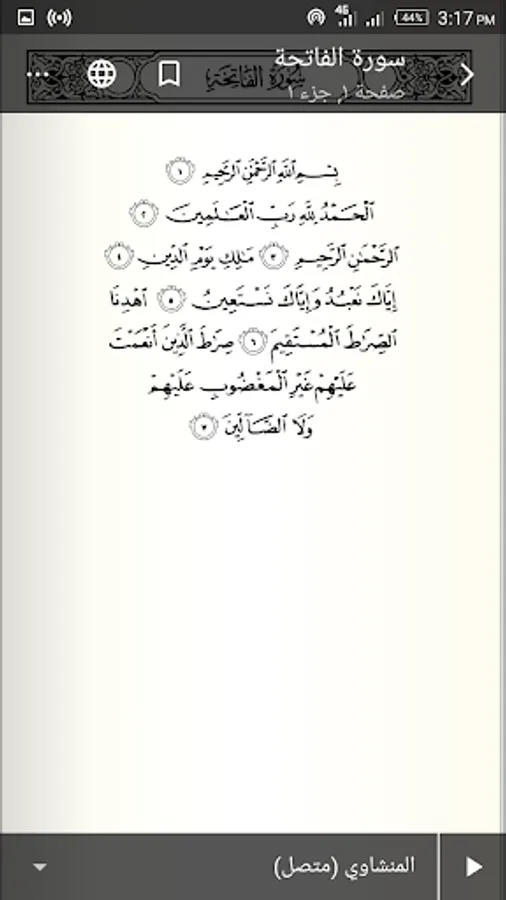 4G 44% 3:17 PM
سورة الفاتحة
صفحة ١, جزء ١
سُورَةُ الفَاتِحَةِ
بِسْمِ ٱللَّهِ ٱلرَّحْمَٰنِ ٱلرَّحِيمِ ١
ٱلْحَمْدُ لِلَّهِ رَبِّ ٱلْعَٰلَمِينَ ٢
ٱلرَّحْمَٰنِ ٱلرَّحِيمِ ٣ مَٰلِكِ يَوْمِ ٱلدِّينِ ٤
إِيَّاكَ نَعْبُدُ وَإِيَّاكَ نَسْتَعِينُ ٥ ٱهْدِنَا
ٱلصِّرَٰطَ ٱلْمُسْتَقِيمَ ٦ صِرَٰطَ ٱلَّذِينَ أَنْعَمْتَ
عَلَيْهِمْ غَيْرِ ٱلْمَغْضُوبِ عَلَيْهِمْ
وَلَا ٱلضَّآلِّينَ ٧
المنشاوي (متصل)